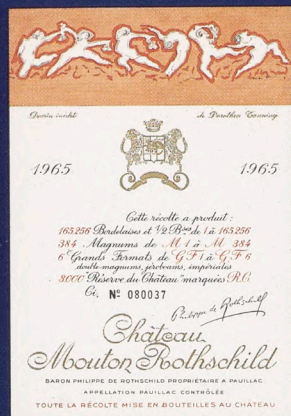 Dessin inédit de Dorothea Tanning
1965 1965
Cette récolte a produit :
165256 Bordelaises et ½ Bses de 1 à 165256
384 Magnums de M 1 à M 384
6 Grands Formats de G F 1 à G F 6
double-magnums, jéroboams, impériales
3000 "Réserve du Château" marquées R.C.
Ci, Nº 080037
Philippe de Rothschild
Château
Mouton Rothschild
BARON PHILIPPE DE ROTHSCHILD PROPRIÉTAIRE A PAUILLAC
APPELLATION PAUILLAC CONTRÔLÉE
TOUTE LA RÉCOLTE MISE EN BOUTEILLES AU CHATEAU